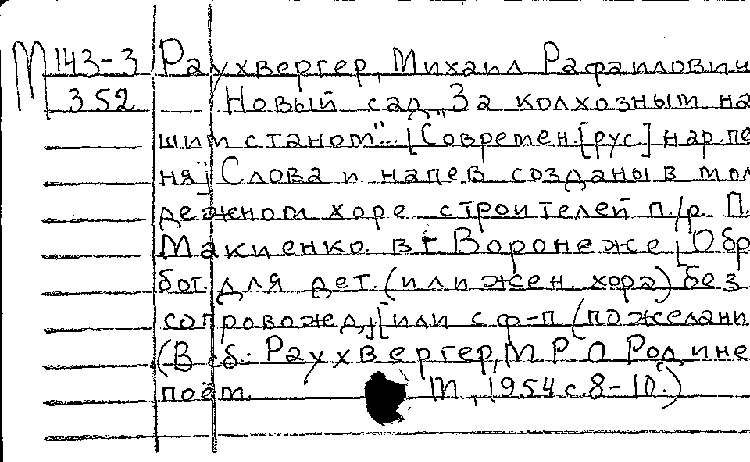 М 143-3 Раухвергер, Михаил Рафаилович
352 Новый сад. "За колхозным на
шим станом"... [Современ. [рус.] нар. пе
ня] Слова и напев созданы в мол
дежном хоре строителей п/р. П.
Макиенко в г Воронеже [Обр
бот. для дет. (или жен. хора) без
сопровожд.] [или с ф-п (по желани
(В сб: Раухвергер, М. Р. О Родине
поём. М, 1954 с. 8-10.)